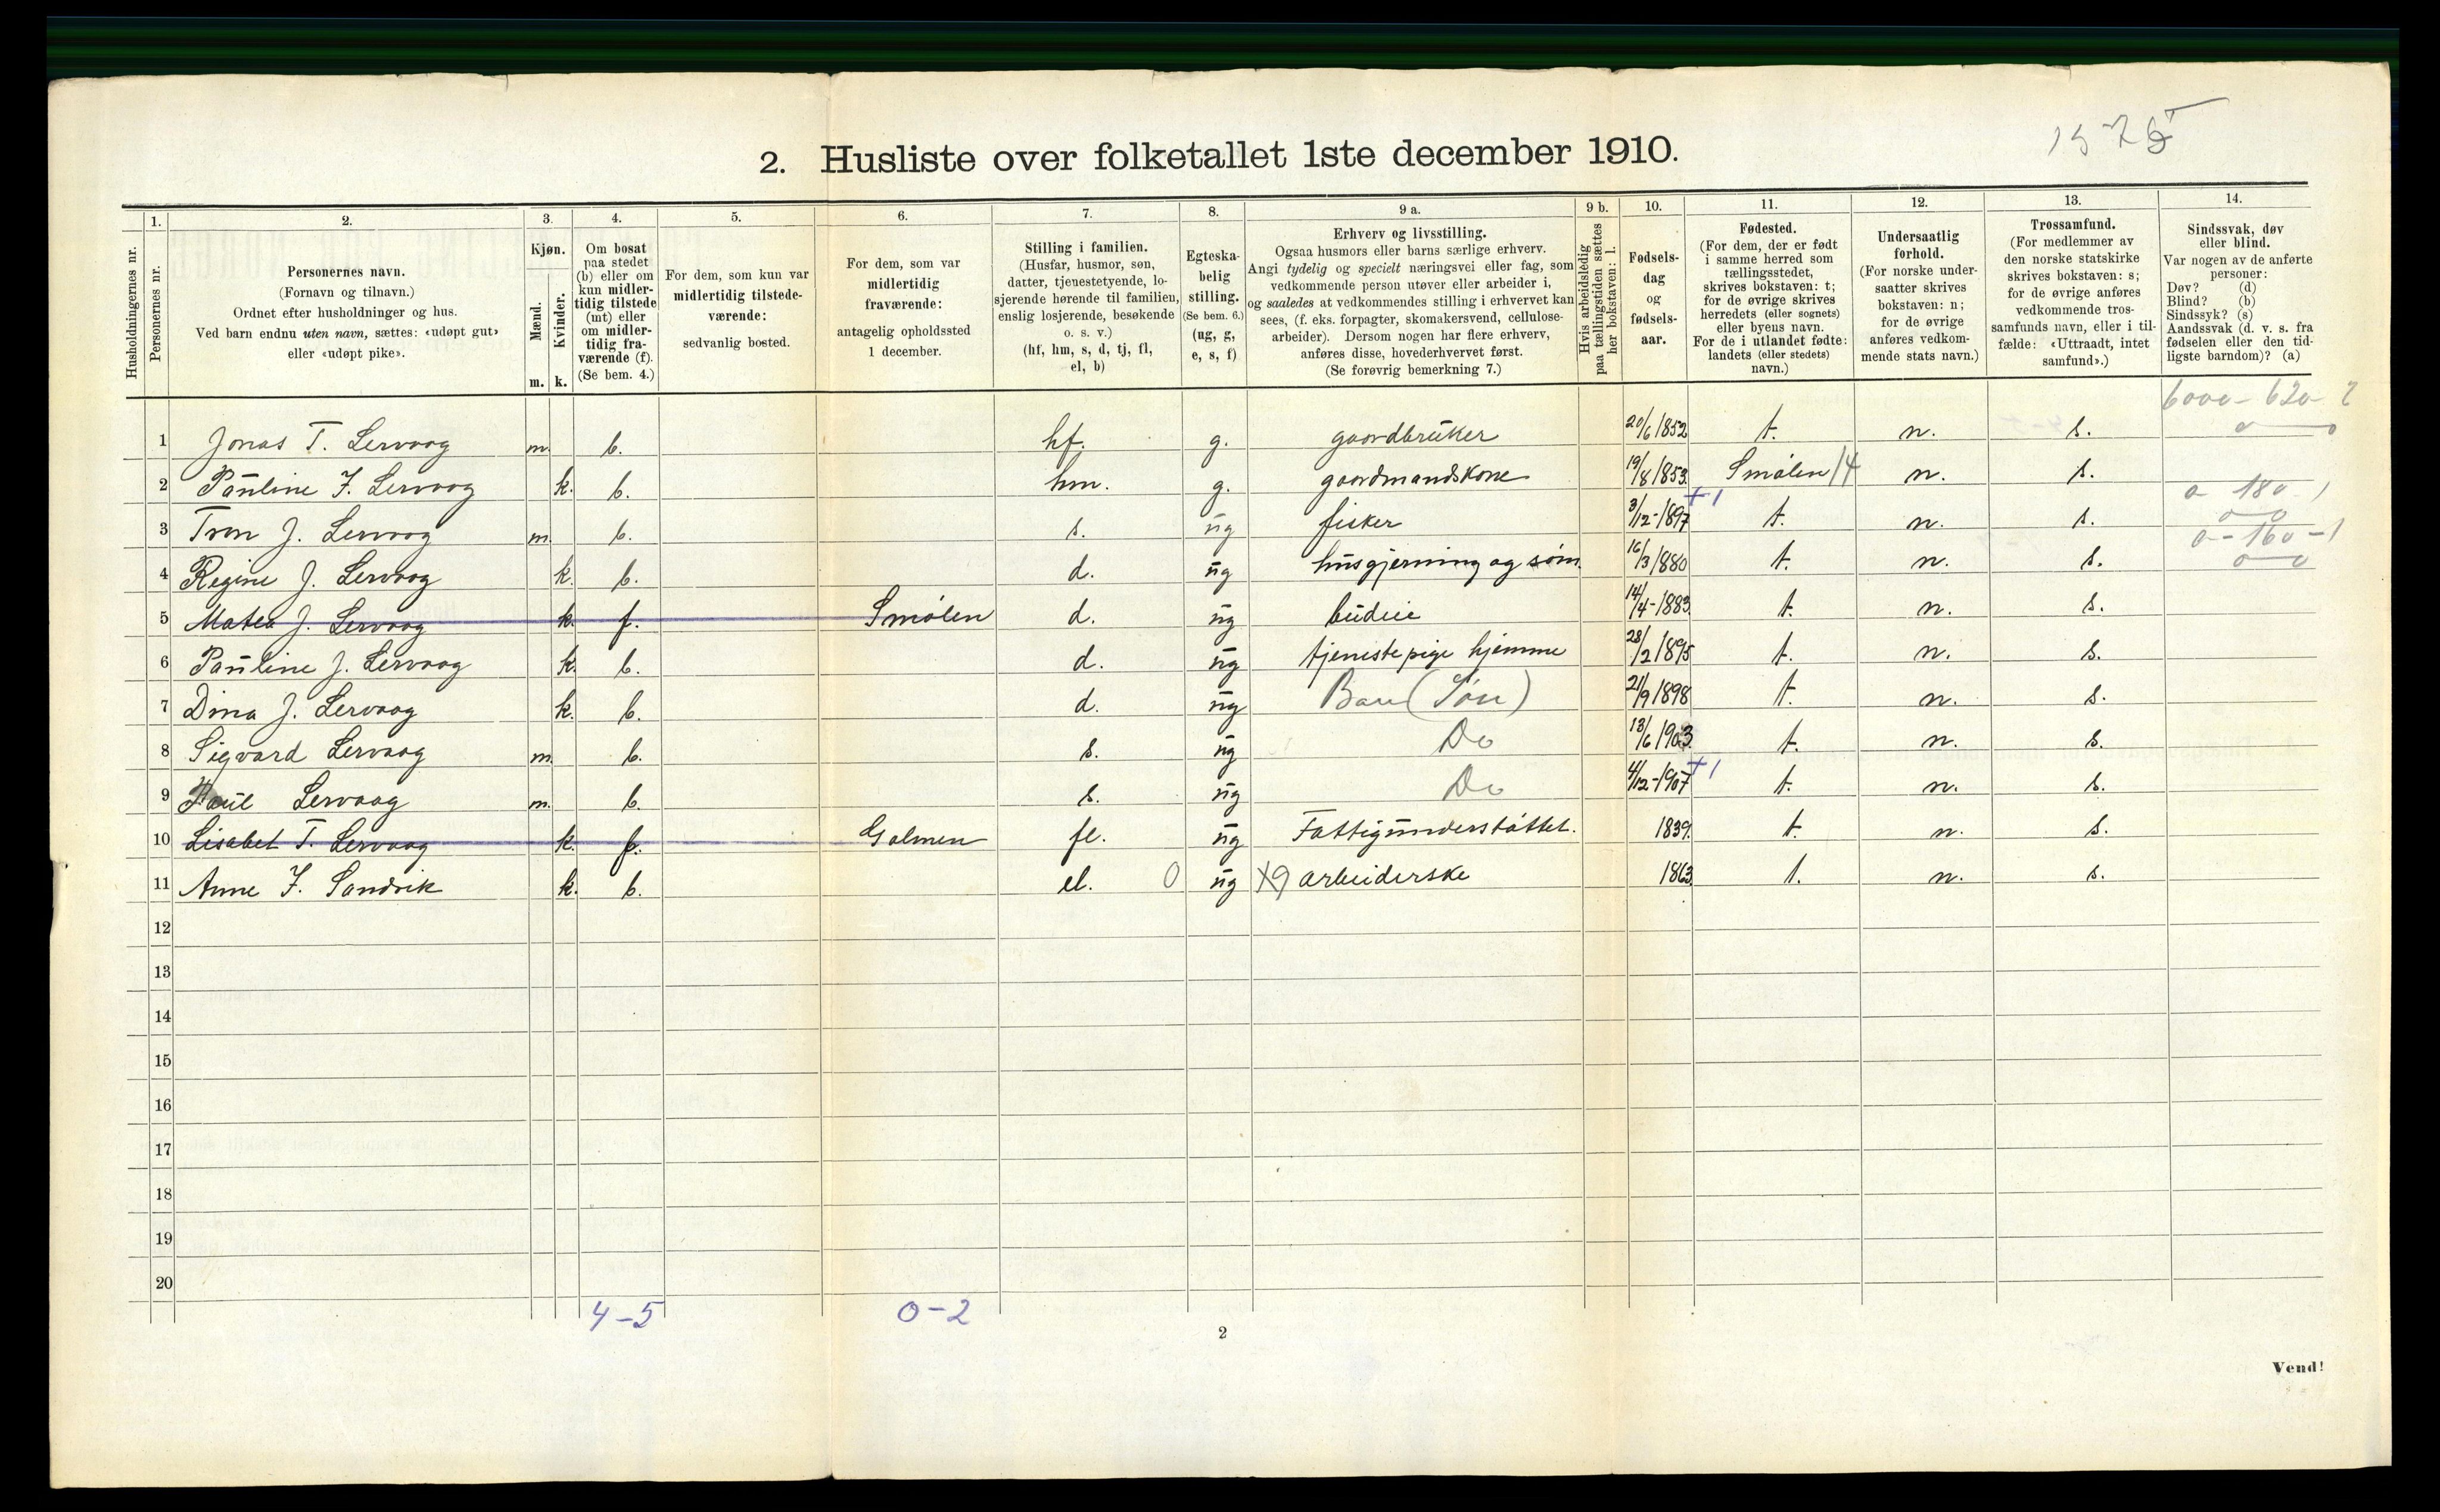 1576
2. Husliste over folketallet 1ste december 1910.
1. 2. 3. 4. 5. 6. 7. 8. 9 a. 9 b. 10. 11. 12. 13. 14.
Husholdningernes nr.
Personernes nr.
Personernes navn.
(Fornavn og tilnavn.)
Ordnet efter husholdninger og hus.
Ved barn endnu uten navn, sættes: «udøpt gut»
eller «udøpt pike».
Kjøn.
Mænd.
Kvinder.
m. k.
Om bosat
paa stedet
(b) eller om
kun midler-
tidig tilstede
(mt) eller
om midler-
tidig fra-
værende (f).
(Se bem. 4.)
For dem, som kun var
midlertidig tilstede-
værende:
sedvanlig bosted.
For dem, som var
midlertidig
fraværende:
antagelig opholdssted
1 december.
Stilling i familien.
(Husfar, husmor, søn,
datter, tjenestetyende, lo-
sjerende hørende til familien,
enslig losjerende, besøkende
o. s. v.)
(hf, hm, s, d, tj, fl,
el, b)
Egteska-
belig
stilling.
(Se bem. 6.)
(ug, g,
e, s, f)
Erhverv og livsstilling.
Ogsaa husmors eller barns særlige erhverv.
Angi tydelig og specielt næringsvei eller fag, som
vedkommende person utøver eller arbeider i,
og saaledes at vedkommendes stilling i erhvervet kan
sees, (f. eks. forpagter, skomakersvend, cellulose-
arbeider). Dersom nogen har flere erhverv,
anføres disse, hovederhvervet først.
(Se forøvrig bemerkning 7.)
Hvis arbeidsledig
paa tællingstiden sættes
her bokstaven: l.
Fødsels-
dag
og
fødsels-
aar.
Fødested.
(For dem, der er født
i samme herred som
tællingsstedet,
skrives bokstaven: t;
for de øvrige skrives
herredets (eller sognets)
eller byens navn.
For de i utlandet fødte:
landets (eller stedets)
navn.)
Undersaatlig
forhold.
(For norske under-
saatter skrives
bokstaven: n;
for de øvrige
anføres vedkom-
mende stats navn.)
Trossamfund.
(For medlemmer av
den norske statskirke
skrives bokstaven: s;
for de øvrige anføres
vedkommende tros-
samfunds navn, eller i til-
fælde: «Uttraadt, intet
samfund».)
Sindssvak, døv
eller blind.
Var nogen av de anførte
personer:
Døv? (d)
Blind? (b)
Sindssyk? (s)
Aandssvak (d. v. s. fra
fødselen eller den tid-
ligste barndom)? (a)
6000 - 620 - 2
1 Jonas T. Lervaag m. b. hf. g. gaardbruker 20/6 1852 t. n. s. o o
2 Pauline F. Lervaag k. b. hm. g. gaardmandskone 19/8 1853. Smølen 14 n. s.
0 180 1
3 Tron J. Lervaag m. b. s. ug fisker 3/12-1897 +1 t. n. s. o o
0 - 160 - 1
4 Regine J. Lervaag k. b. d. ug husgjerning og søm. 16/3 1880 t. n. s. o o
5 Matea J. Lervaag k. f. Smølen d. ug budeie 14/4-1883. t. n. s.
6 Pauline J. Lervaag k. b. d. ug tjenestepige hjemme 28/2 1895 t. n. s.
7 Dina J. Lervaag k. b. d. ug Barn (Søn) 21/9 1898 t. n. s.
8 Sigvard Lervaag m. b. s. ug Do 13/6 1903. t. n. s.
9 Paul Lervaag m. b. s. ug Do 4/12-1907 +1 t. n. s.
10 Lisabet T. Lervaag k. f. Galmen fl. ug Fattigunderstøttet. 1839. t. n. s.
11 Anne F. Sandvik k. b. el. 0 ug X9 arbeiderske 1863 t. n. s.
12
13
14
15
16
17
18
19
20
4-5 0-2
2
Vend!